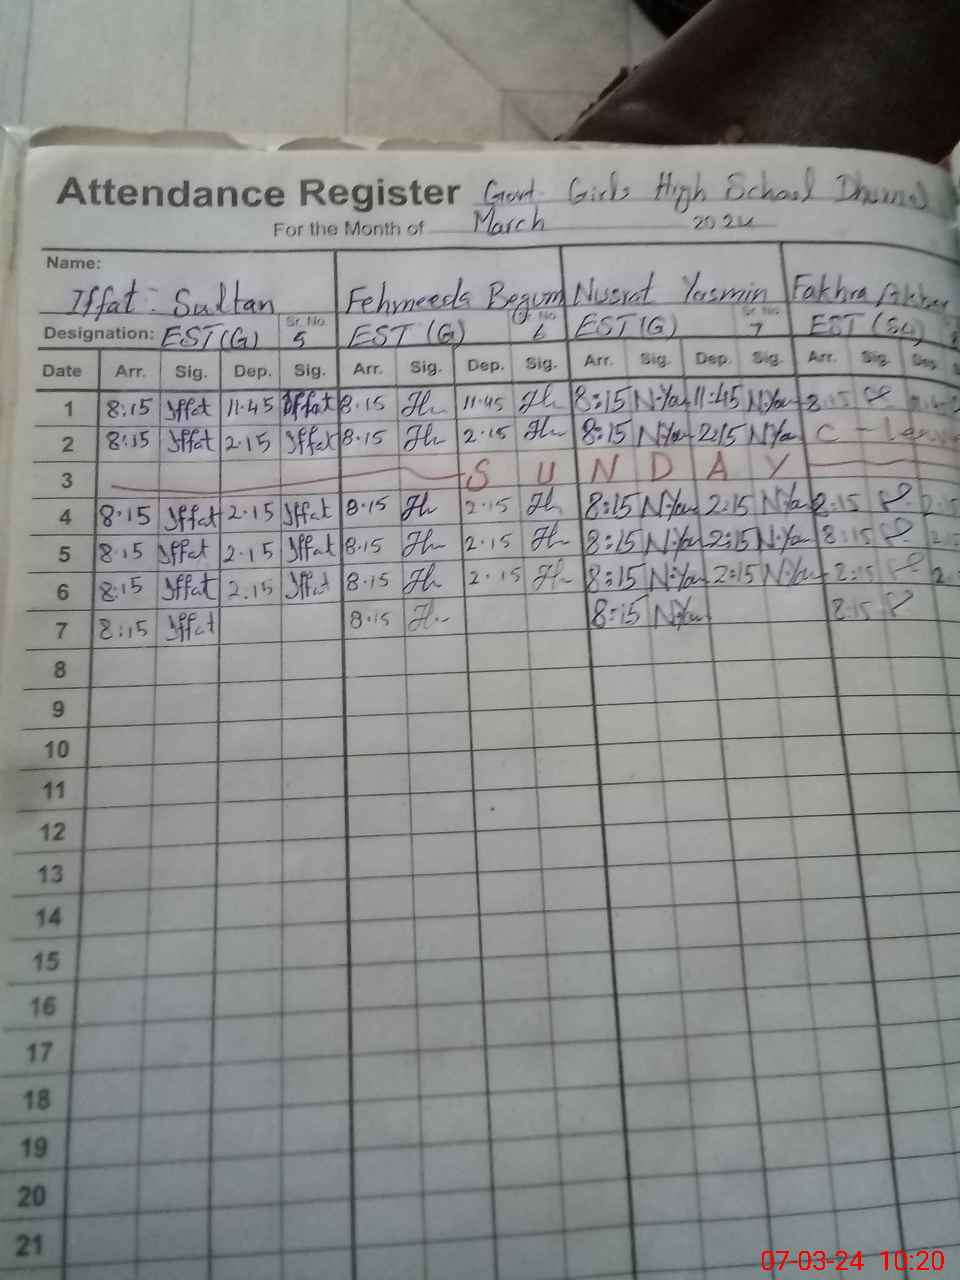 Attendance Register Govt. Girls High School
For the Month of March 2024
Name:
Iffat: Sultan Fehmeeda Begum Nusrat Yasmin Fakhra
Designation: EST (G) Sr. No 5 EST (G) Sr. No 6 EST (G) Sr. No 7 EST (
Date Arr. Sig. Dep. Sig. Arr. Sig. Dep. Sig. Arr. Sig. Dep. Sig. Arr. Sig. Dep.
1 8:15 Iffat 11.45 Iffat 8.15 11.45 8:15 N.Yas 11:45 N.Yas 8:15
2 8:15 Iffat 2.15 Iffat 8.15 2.15 8:15 N.Yas 2:15 N.Yas C - Leave
3 SUNDAY
4 8.15 Iffat 2.15 Iffat 8.15 2.15 8:15 N.Yas 2:15 N.Yas 8:15
5 8:15 Iffat 2.15 Iffat 8.15 2.15 8:15 N.Yas 2:15 N.Yas 8:15
6 8:15 Iffat 2.15 Iffat 8.15 2.15 8:15 N.Yas 2:15 N.Yas 8:15
7 8:15 Iffat 8.15 8:15 N.Yas 8:15
8
9
10
11
12
13
14
15
16
17
18
19
20
21
07-03-24 10:20